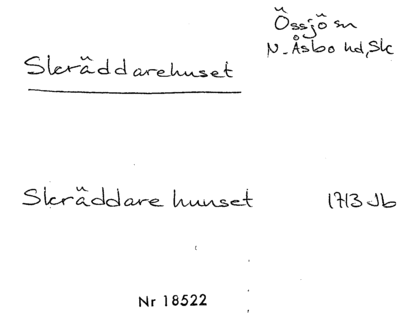 Össjö sn
N. Åsbo hd, Sk
Skräddarehuset
Skräddare hunset 1713 Jb
Nr 18522